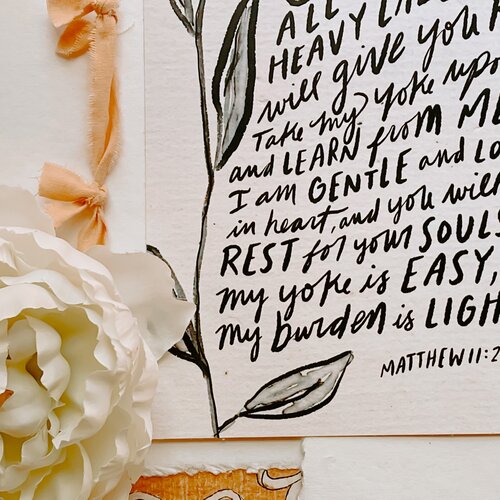 ALL
HEAVY LADE
will give you
Take my yoke upo
and LEARN from ME
I am GENTLE and LO
in heart, and you will
REST for your SOULS
my yoke is EASY,
my burden is LIGH
MATTHEW 11:2